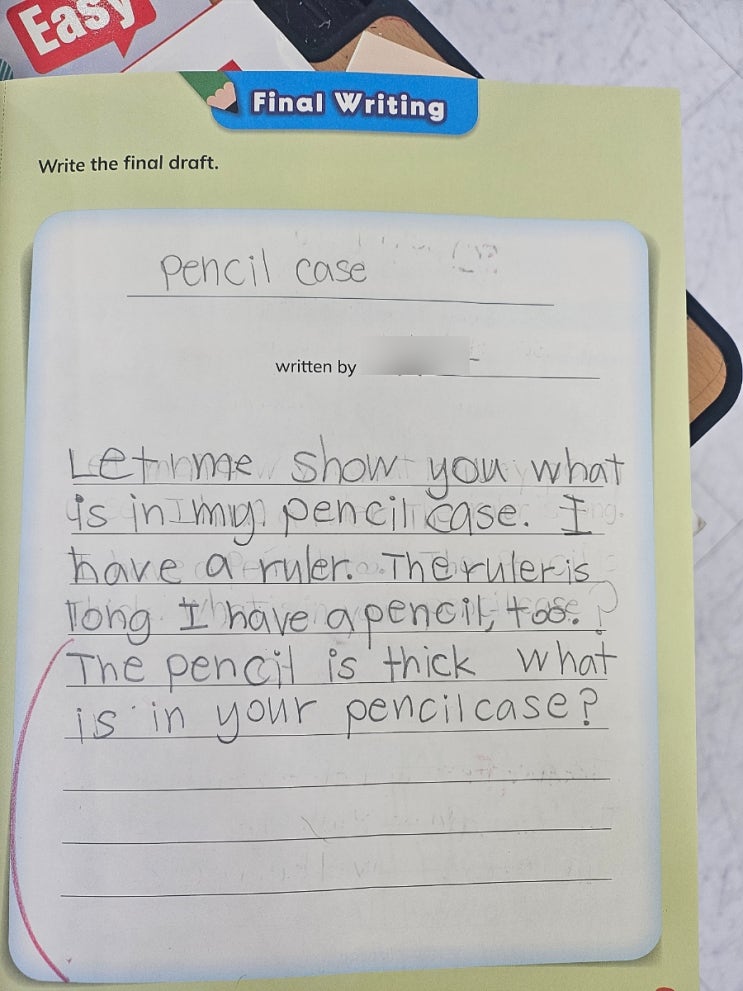 Easy
Final Writing
Write the final draft.
pencil case
written by
Let me show you what
is in my pencil case. I
have a ruler. The ruler is
long I have a pencil, too.
The pencil is thick what
is in your pencil case?